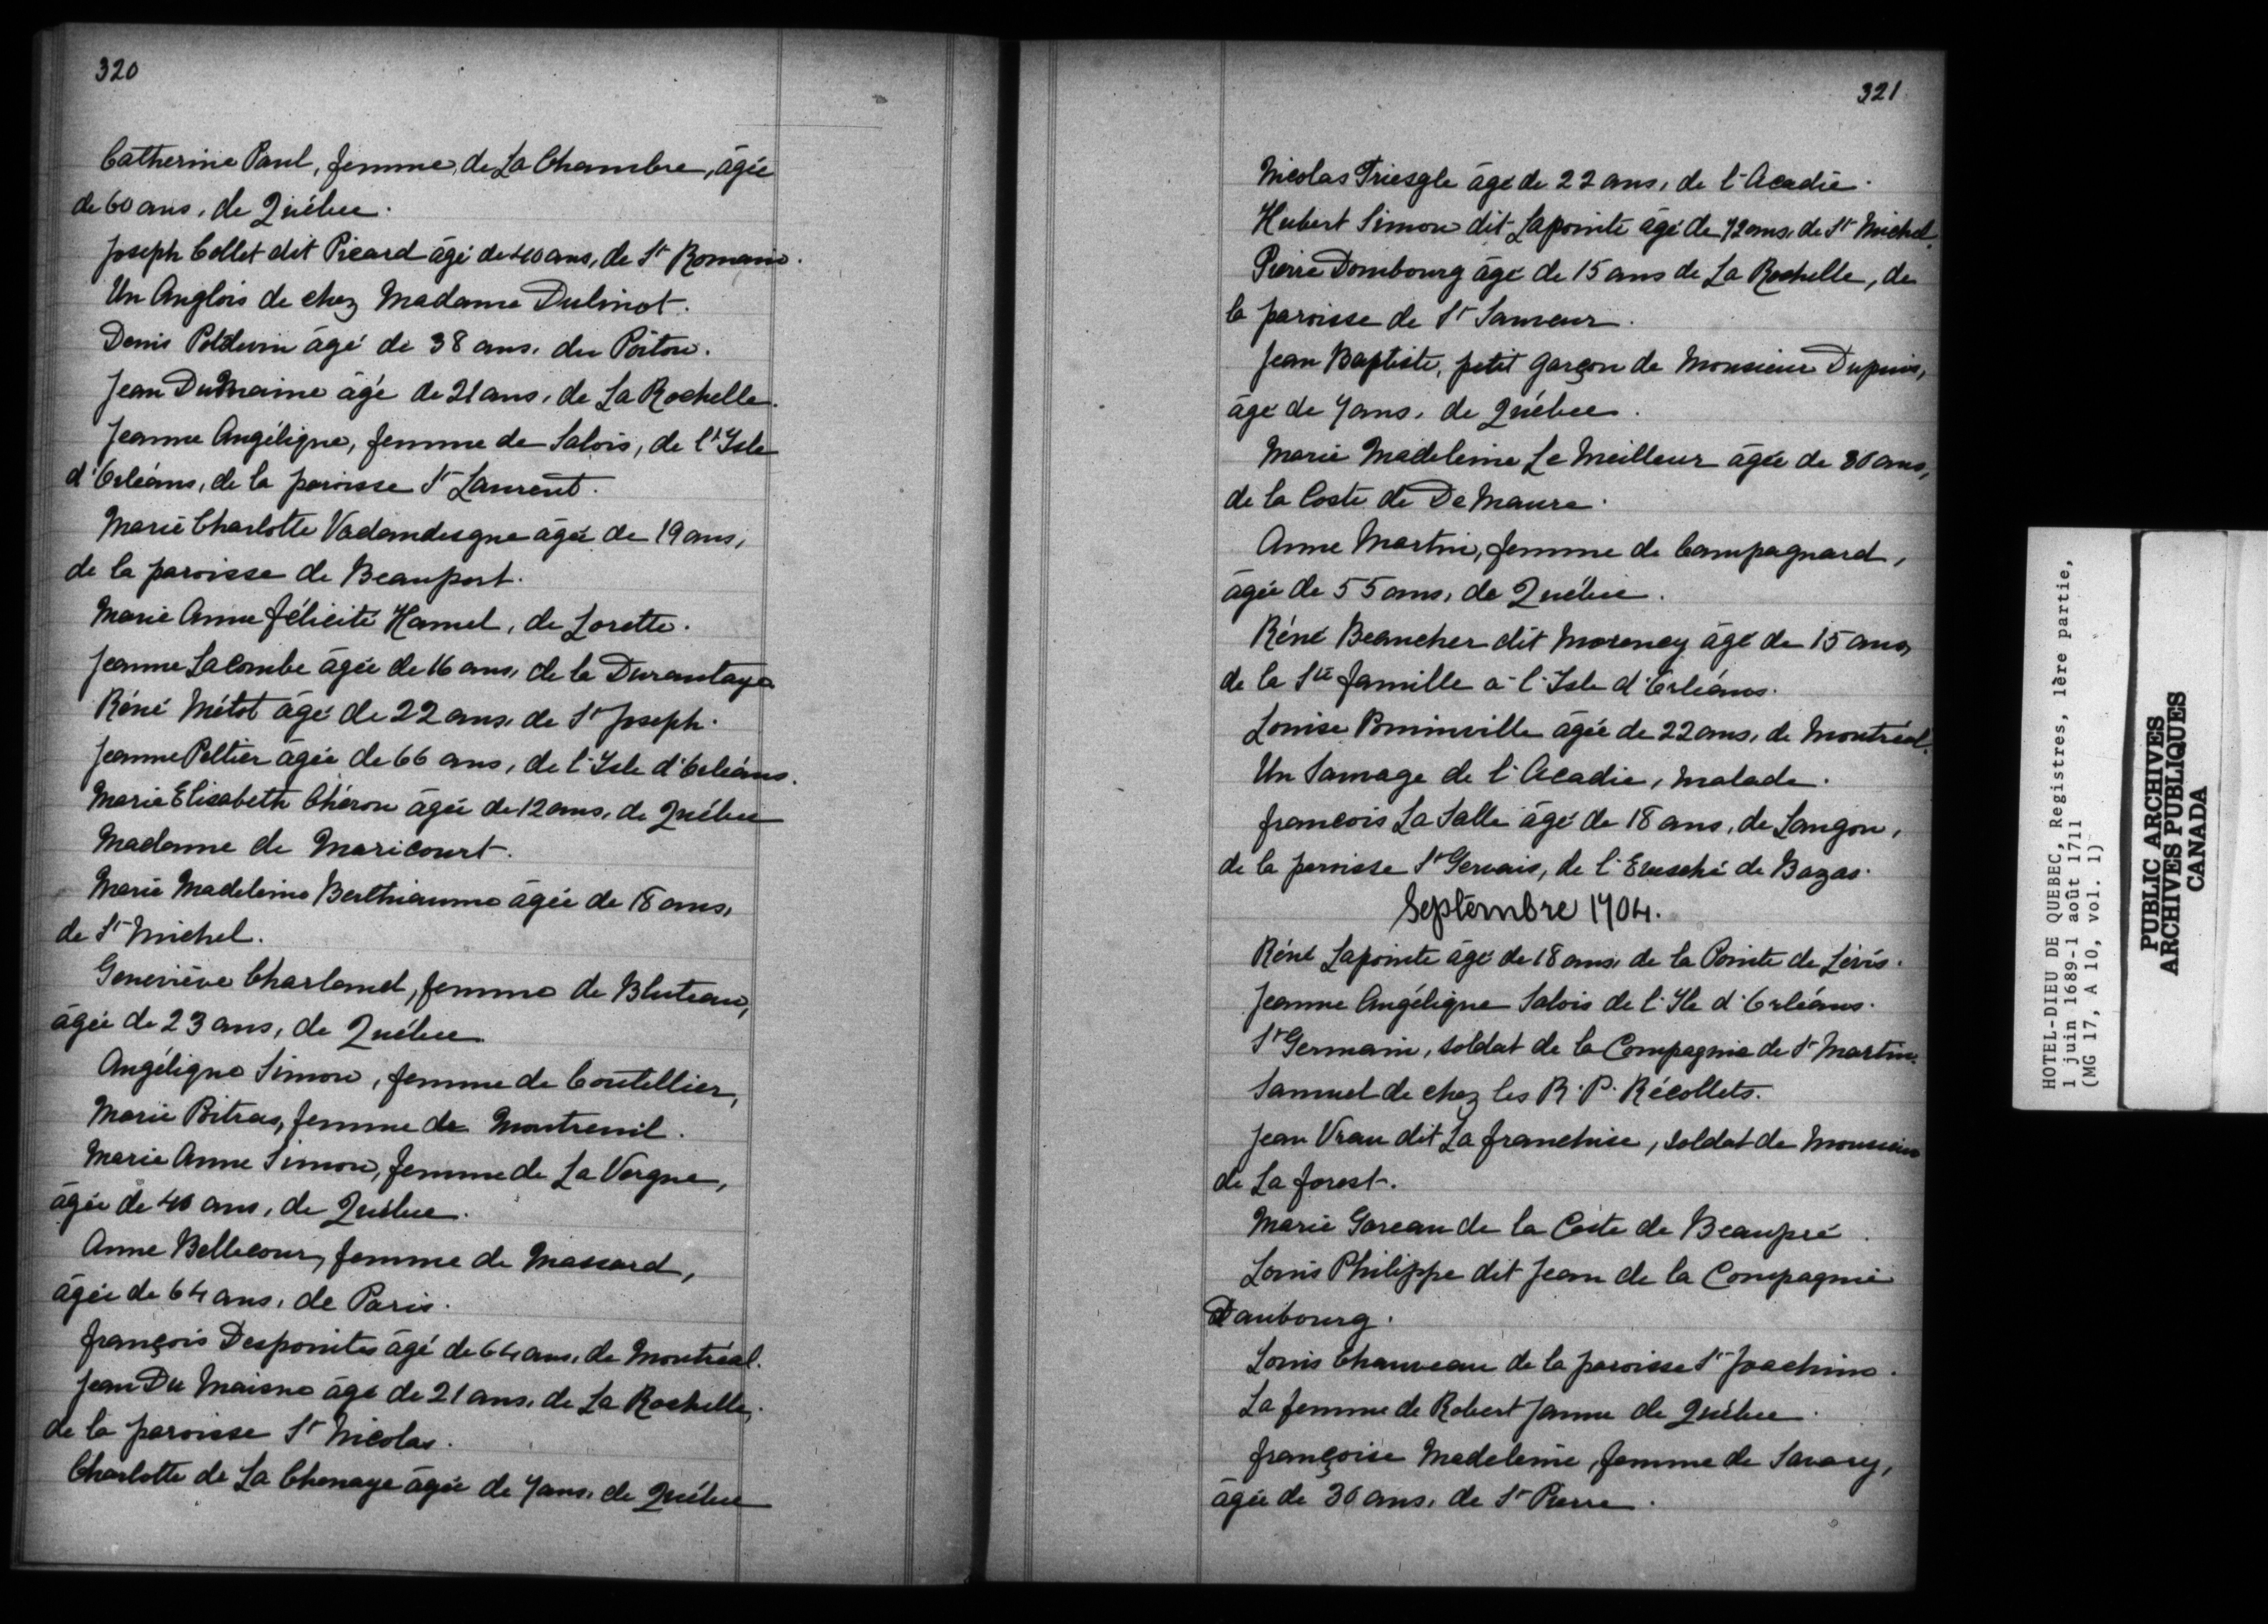 320
Catherine Paul, femme de La Chambre, âgée
de 60 ans, de Québec.
Joseph Collet dit Picard âgé de 40 ans, de St Romain.
Un Anglois de chez Madame Dulinot.
Denis Poidevin âgé de 38 ans, du Poitou.
Jean DuMaine âgé de 21 ans, de La Rochelle.
Jeanne Angélique, femme de Salois, de l'Isle
d'Orléans, de la paroisse St Laurent.
Marie Charlotte Vadandesque âgée de 19 ans,
de la paroisse de Beauport.
Marie Anne félicité Hamel, de Lorette.
Jeanne Lacombe âgée de 16 ans, de la Durantaye
Réné Métot âgé de 22 ans, de St Joseph.
Jeanne Peltier âgée de 66 ans, de l'Isle d'Orléans.
Marie Elisabeth Chéron âgée de 12 ans, de Québec
Madame de Maricourt.
Marie Madeleine Berthiaume âgée de 18 ans,
de St Michel.
Geneviève Charland, femme de Bluteau,
âgée de 23 ans, de Québec
Angélique Simon, femme de Coutellier,
Marie Poitras, femme de Montreuil.
Marie Anne Simon, femme de La Vergne,
âgée de 40 ans, de Québec.
Anne Bellecour, femme de Massard,
âgée de 64 ans, de Paris.
françois Despointes âgé de 64 ans, de Montréal.
Jean Du Maisne âgé de 21 ans, de La Rochelle,
de la paroisse St Nicolas.
Charlotte de La Chenaye âgée de 7 ans, de Québec
321
Nicolas Triesgle âgé de 22 ans, de l'Acadie.
Hubert Simon dit Lapointe âgé de 72 ans, de St Michel.
Pierre Dombourg âgé de 15 ans de La Rochelle, de
la paroisse de St Sauveur.
Jean Baptiste, petit garçon de Monsieur Dupuis,
âgé de 7 ans, de Québec.
Marie Madeleine Le Meilleur âgée de 30 ans,
de la Coste de De Maure.
Anne Martin, femme de Campagnard,
âgée de 55 ans, de Québec.
Réné Beaucher dit Morency âgé de 15 ans,
de la Ste famille à l'Isle d'Orléans.
Louise Pominville âgée de 22 ans, de Montréal.
Un Sauvage de l'Acadie, malade.
francois La Salle âgé de 18 ans, de Langon,
de la paroisse St Gervais, de l'Evesché de Bazas.
Septembre 1704.
Réné Lapointe âgé de 18 ans, de la Pointe de Lévis.
Jeanne Angélique Salois de l'Ile d'Orléans.
St Germain, soldat de la Compagnie de St Martin.
Samuel de chez les R. P. Récollets.
Jean Vrau dit La franchise, soldat de Monsieur
de La forest.
Marie Gareau de la Coste de Beaupré.
Louis Philippe dit Jean de la Compagnie
Daubourg.
Louis Chauveau de la paroisse St Joachim.
La femme de Robert Janne de Québec.
françoise Madeleine, femme de Savary,
âgée de 36 ans, de St Pierre.
HOTEL-DIEU DE QUEBEC, Registres, 1ère partie,
1 juin 1689-1 août 1711
(MG 17, A 10, vol. 1)
PUBLIC ARCHIVES
ARCHIVES PUBLIQUES
CANADA